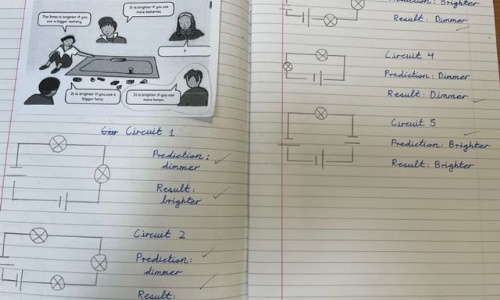 The lamp is brighter if you use a bigger battery.
It is brighter if you use more batteries.
?
It is brighter if you use a bigger lamp.
It is brighter if you use more lamps.
Circuit 1
Prediction:
dimmer
Result:
brighter
Circuit 2
Prediction:
dimmer
Result:
Prediction: Brighter
Result: Dimmer
Circuit 4
Prediction: Dimmer
Result: Dimmer
Circuit 5
Prediction: Brighter
Result: Brighter